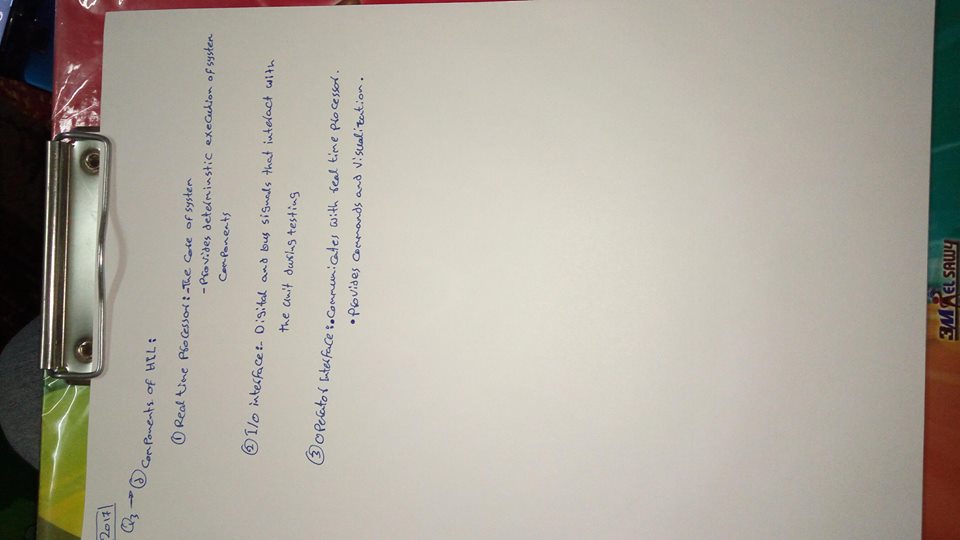 2017
Q3 → d Components of HIL:
① Real time Processor:- - The Core of system
- Provides deterministic execution of system
Components
② I/o interface:- Digital and bus signals that interact with
the unit during testing
③ Operator Interface: • Communicates with real time Processor.
• Provides Commands and Visualization.
3M EL SAWY